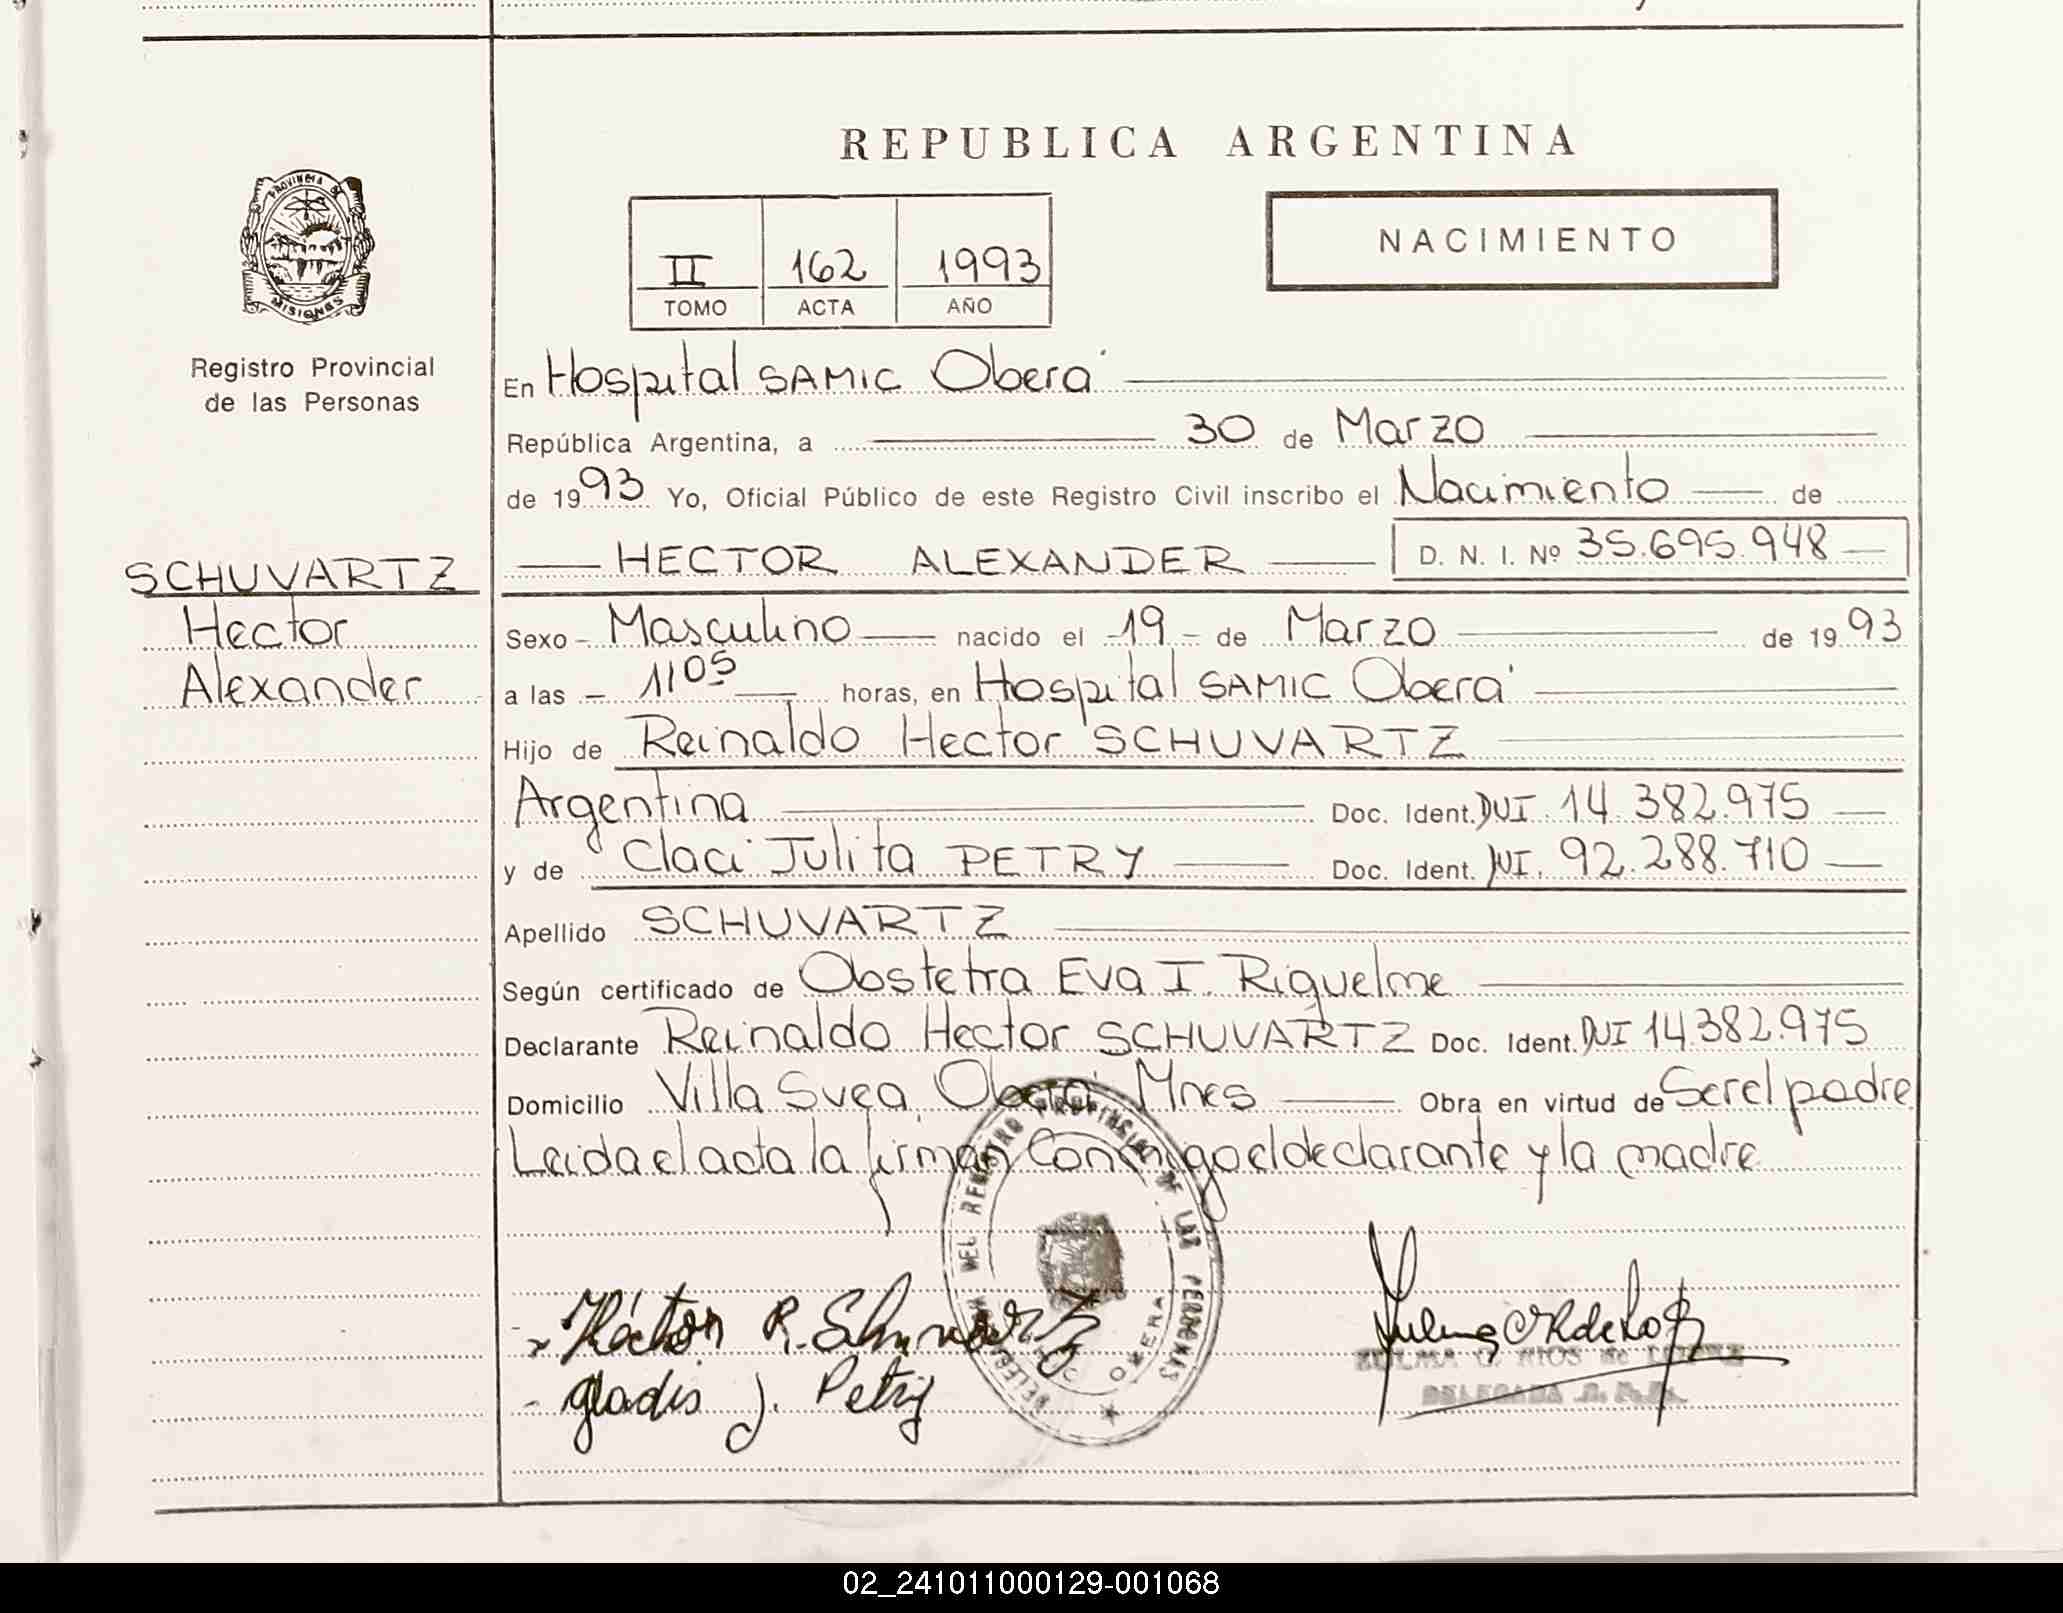 REPUBLICA ARGENTINA
PROVINCIA DE
MISIONES
Registro Provincial
de las Personas
II 162 1993
TOMO ACTA AÑO
NACIMIENTO
En Hospital SAMIC Oberá
República Argentina, a 30 de Marzo
de 1993 Yo, Oficial Público de este Registro Civil inscribo el Nacimiento de
HECTOR ALEXANDER D. N. I. Nº 35.695.948
SCHUVARTZ
Hector
Alexander
Sexo - Masculino nacido el - 19 - de Marzo de 1993
a las - 1105 horas, en Hospital SAMIC Oberá
Hijo de Reinaldo Hector SCHUVARTZ
Argentina Doc. Ident. DUI 14.382.975
y de Claci Julita PETRY Doc. Ident. 92.288.710
Apellido SCHUVARTZ
Según certificado de Obstetra Eva I. Riquelme
Declarante Reinaldo Hector SCHUVARTZ Doc. Ident. DUI 14.382.975
Domicilio Villa Svea, Oberá Mnes Obra en virtud de Ser el padre
Leida el acta la firman conmigo el declarante y la madre
DEL REGISTRO PROVINCIAL DE LAS PERSONAS
OBERA
Héctor R. Schuvartz
gladis J. Petry
ZULMA RIOS de
DELEGADA
02_241011000129-001068